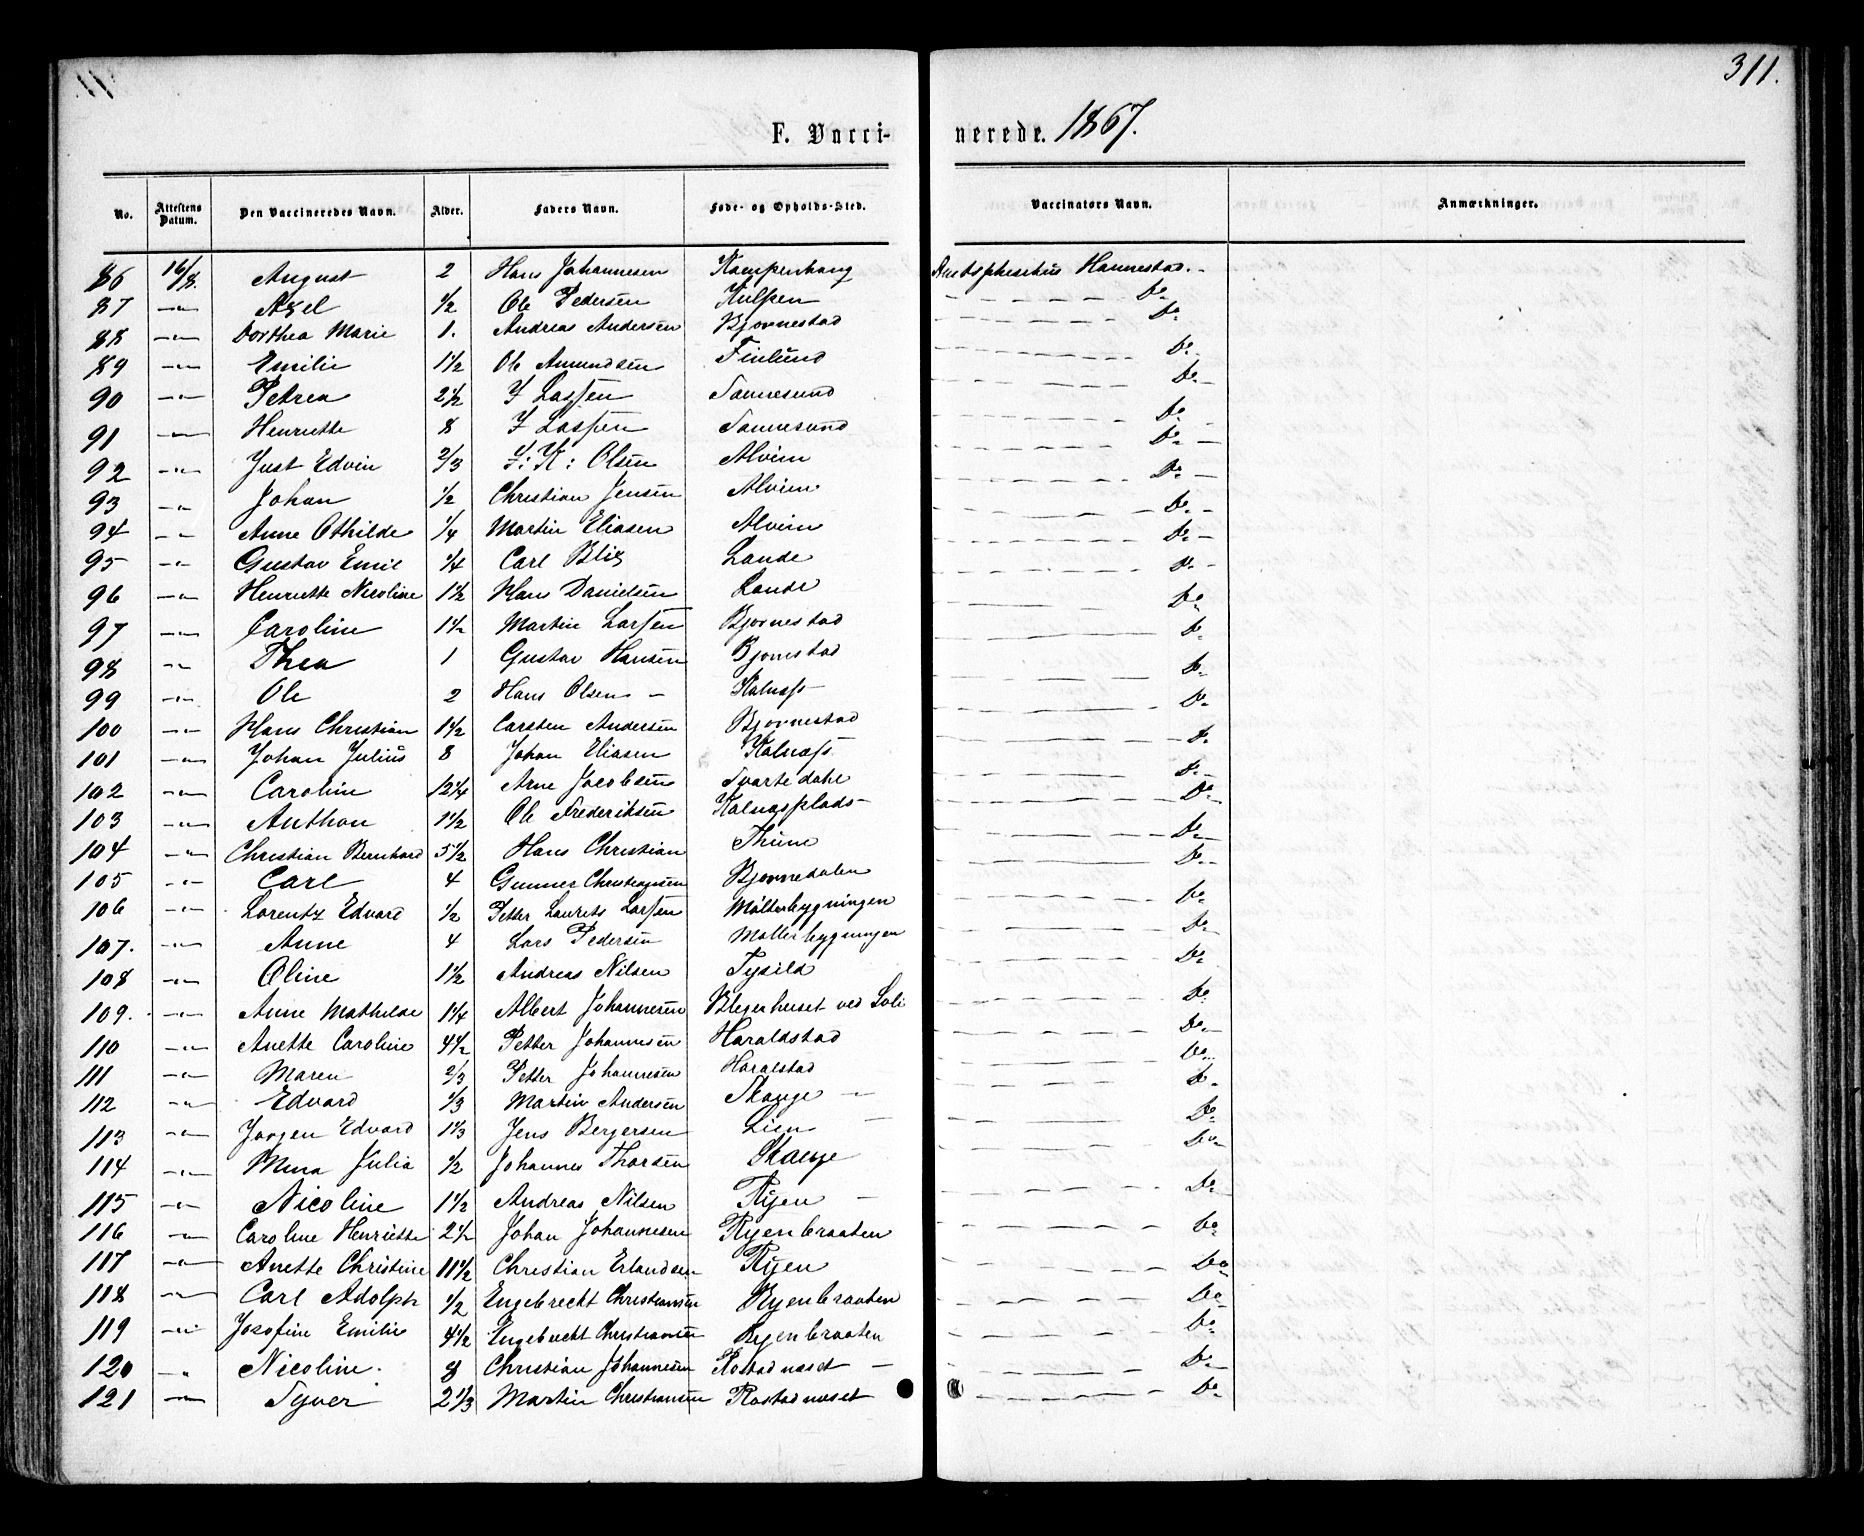 311.
F. Vacci-nerede. 1867.
No. | Attestens Datum. | Den Vaccineredes Navn. | Alder. | Faders Navn. | Føde- og Opholds-Sted. | Vaccinators Navn. | Anmærkninger.
86 | 16/8. | August | 2 | Hans Johannesen | Kampenhaug | Hannestad. -
87 | -"- | Axel | 1/2 | Ole Pedersen | Kulpen | Do
88 | -"- | Dorthea Marie | 1. | Andreas Andersen | Bjørnestad | Do
89 | -"- | Emilie | 1 1/2 | Ole Amundsen | Finlund | Do
90 | -"- | Petrea | 2 1/2 | I Lassen | Tannesund | Do
91 | -"- | Henriette | 8 | I Lassen | Tannesund | Do
92 | -"- | Just Edvin | 2/3 | I: K: Olsen | Alvim | Do
93 | -"- | Johan | 1/2 | Christian Jensen | Alvim | Do
94 | -"- | Anne Othilde | 1/4 | Martin Eliasen | Alvim | Do
95 | -"- | Gustav Emil | 1/4 | Carl Blix | Lande | Do
96 | -"- | Henriette Nicoline | 1 1/2 | Hans Danielsen | Lande | Do
97 | -"- | Caroline | 1 1/2 | Martin Larsen | Bjørnestad | Do
98 | -"- | Thea | 1 | Gustav Hansen | Bjørnestad | Do
99 | -"- | Ole | 2 | Hans Olsen - | Kalnæs | Do
100 | -"- | Hans Christian | 1 1/2 | Carsten Andersen | Bjørnestad | Do
101 | -"- | Johan Julius | 8 | Johan Eliasen | Kalnæs | Do
102 | -"- | Caroline | 12 1/4 | Arne Jacobsen | Svartedahl | Do
103 | -"- | Anthon | 1 1/2 | Ole Frederiksen | Kalnæsplads- | Do
104 | -"- | Christian Bernhard | 5 1/2 | Hans Christian | Thune | Do
105 | -"- | Carl | 4 | Gunner Christiansen | Bjørnedalen | Do
106 | -"- | Lorentz Edvard | 1/2 | Petter Laurets Larsen | Møllerbygningen | Do
107. | -"- | Anne | 4 | Lars Pedersen | Møllerbygningen | Do
108 | -"- | Oline | 1 1/2 | Andreas Nilsen | Tysild | Do
109. | -"- | Anne Mathilde | 1 1/4 | Albert Johannesen | Blegerhuset ved Soli | Do
110 | -"- | Anette Caroline | 4 1/2 | Petter Johannesen | Haraldstad | Do
111 | -"- | Maren | 2/3 | Petter Johannesen | Haralstad | Do
112 | -"- | Edvard | 1/3 | Martin Andersen | Skauge - | Do
113 | -"- | Jørgen Edvard | 1 1/3 | Jens Bergersen | Lien - | Do
114 | -"- | Mina Julia | 1/2 | Johannes Thorsen | Skauge | Do
115 | -"- | Nicoline | 1 1/2 | Andreas Nilsen | Ryen - | Do
116 | -"- | Caroline Henriette | 2 1/2 | Johan Johannesen | Ryenbraaten | Do
117 | -"- | Anette Christine | 11 1/2 | Christian Erlandsen | Ryen | Do
118 | -"- | Carl Adolph | 1/2 | Engebrecht Christiansen | Ryenbraaten | Do
119 | -"- | Josefine Emilie | 4 1/2 | Engebrecht Christiansen | Ryenbraaten | Do
120 | -"- | Nicoline. | 8 | Christian Johannesen | Rostadnæset - | Do
121 | -"- | Syver | 2 1/3 | Martin Christiansen | Rostadnæset | Do